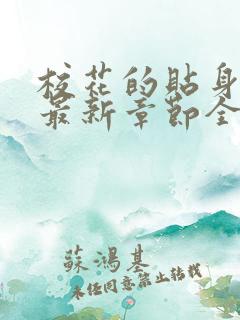 校花的貼身
最新章節全
蘇鴻基
未經同意禁止轉載